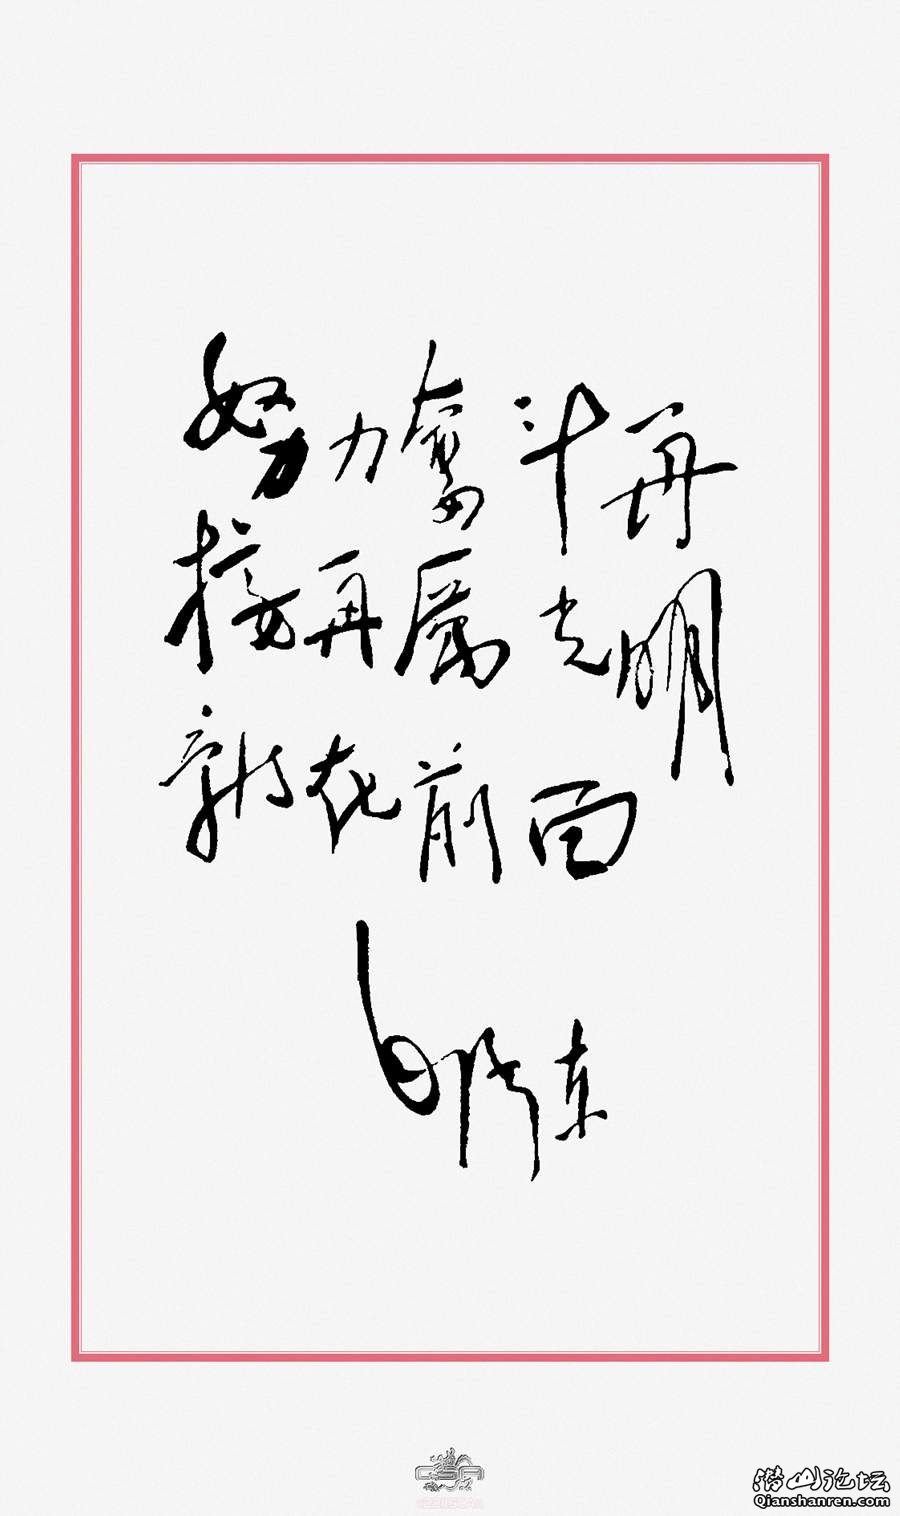 努力奋斗再
接再厉光明
就在前面
毛泽东
CSA
潜山论坛
Qianshanren.com